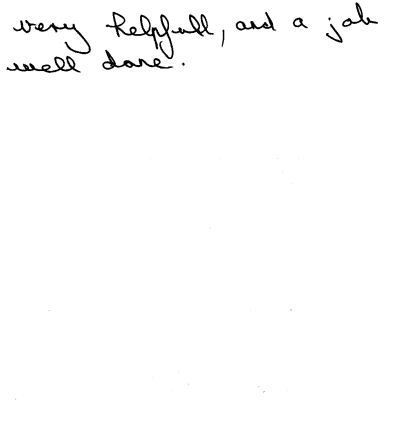 very helpfull, and a job
well done.